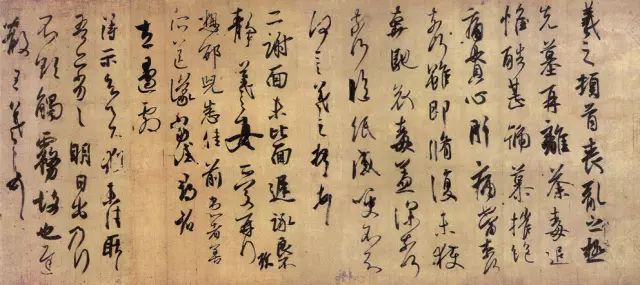 羲之頓首喪亂之極
先墓再離荼毒追
惟酷甚號慕摧絕
痛貫心肝痛當奈何
奈何雖即脩復未獲
奔馳哀毒益深奈何
奈何臨紙感哽不知
何言羲之頓首頓首
二謝面未比面遲詠良不
靜羲之女愛再拜
想邪兒悉佳前患者善
所送議當試尋省
左邊劇
得示知足下猶未佳耿耿
吾亦劣劣明日出乃行
不欲觸霧故也遲
散王羲之頓首